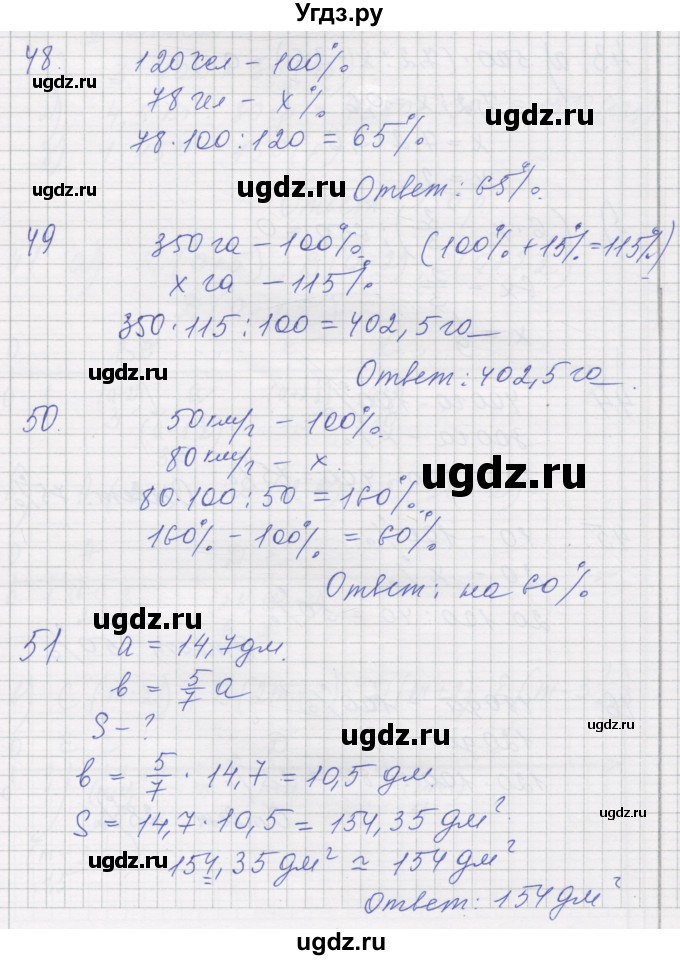 Угдз.ру
48. 120 чел – 100%
ugdz.ru
78 чел – x %
ugdz.ru
78·100:120 = 65%
ugdz.ru ugdz.ru
Ответ: 65%.
49 350 га – 100% (100% + 15% = 115%)
x га – 115%
350·115:100 = 402,5 га
ugdz.ru
Ответ: 402,5 га.
50. 50 км/г – 100%
80 км/г – x
ugdz.ru
80·100:50 = 160%.
160% – 100% = 60%
Ответ: на 60%
ugdz.ru
51. a = 14,7 дм.
b = 5/7 a
S – ?
ugdz.ru
ugdz.ru
b = 5/7 · 14,7 = 10,5 дм.
S = 14,7·10,5 = 154,35 дм²
ugdz.ru
ugdz.ru
154,35 дм² ≃ 154 дм²
Ответ: 154 дм²
ugdz.ru